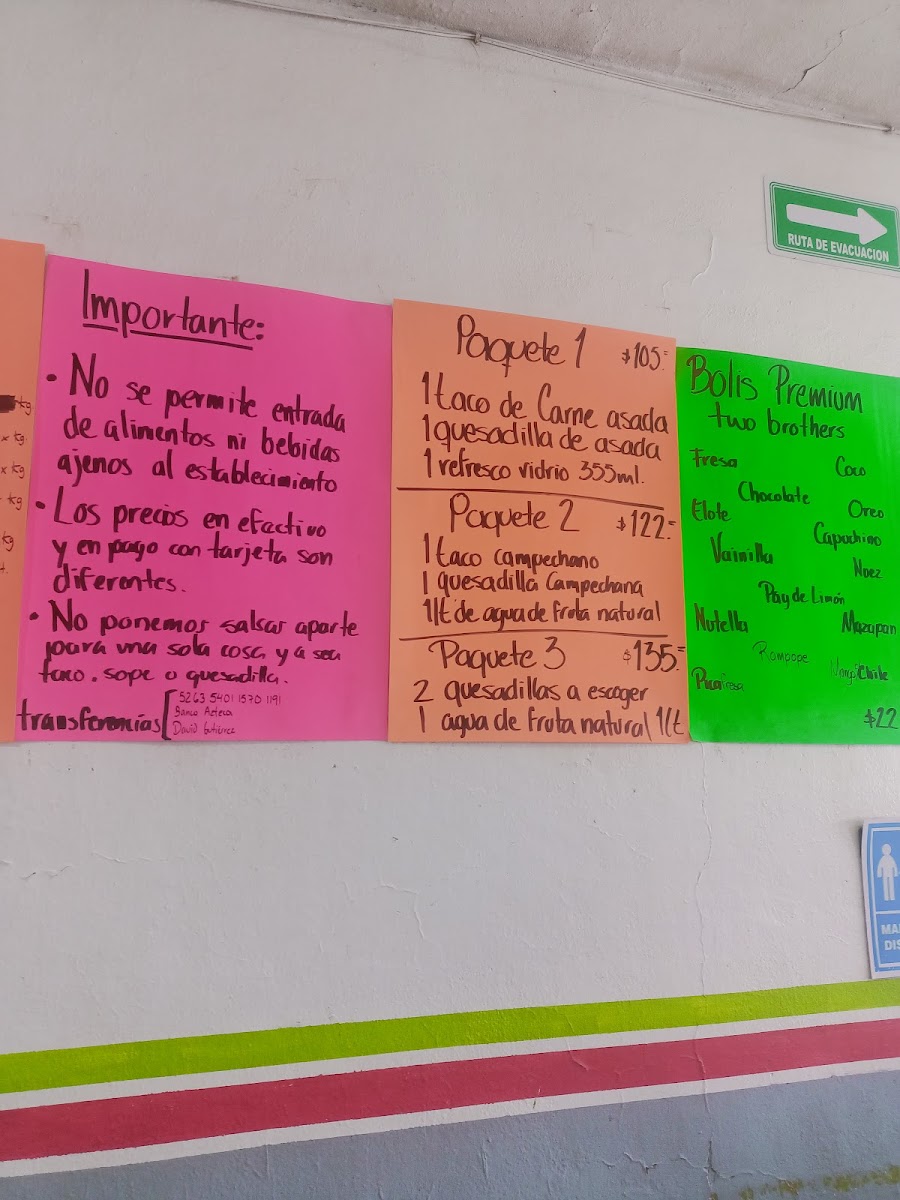 RUTA DE EVACUACION
kg
x kg.
x kg
kg
kg
Importante:
• No se permite entrada
de alimentos ni bebidas
ajenos al establecimiento
• Los precios en efectivo
y en pago con tarjeta son
diferentes.
• No ponemos salsas aparte
para una sola cosa, ya sea
taco. sope o quesadilla.
transferencias
5263 5401 1570 1191
Banco Azteca
David Gutiérrez
Paquete 1 $105.=
1 taco de Carne asada
1 quesadilla de asada
1 refresco vidrio 355ml.
Paquete 2 $122.=
1 taco campechano
1 quesadilla Campechana
1lt de agua de fruta natural
Paquete 3 $135.=
2 quesadillas a escoger
1 agua de fruta natural 1lt
Bolis Premium
two brothers
Fresa Coco
Chocolate Oreo
Elote Capuchino
Vainilla Nuez
Pay de Limón
Nutella Mazapan
Rompope Chile
$22
MA
DIS